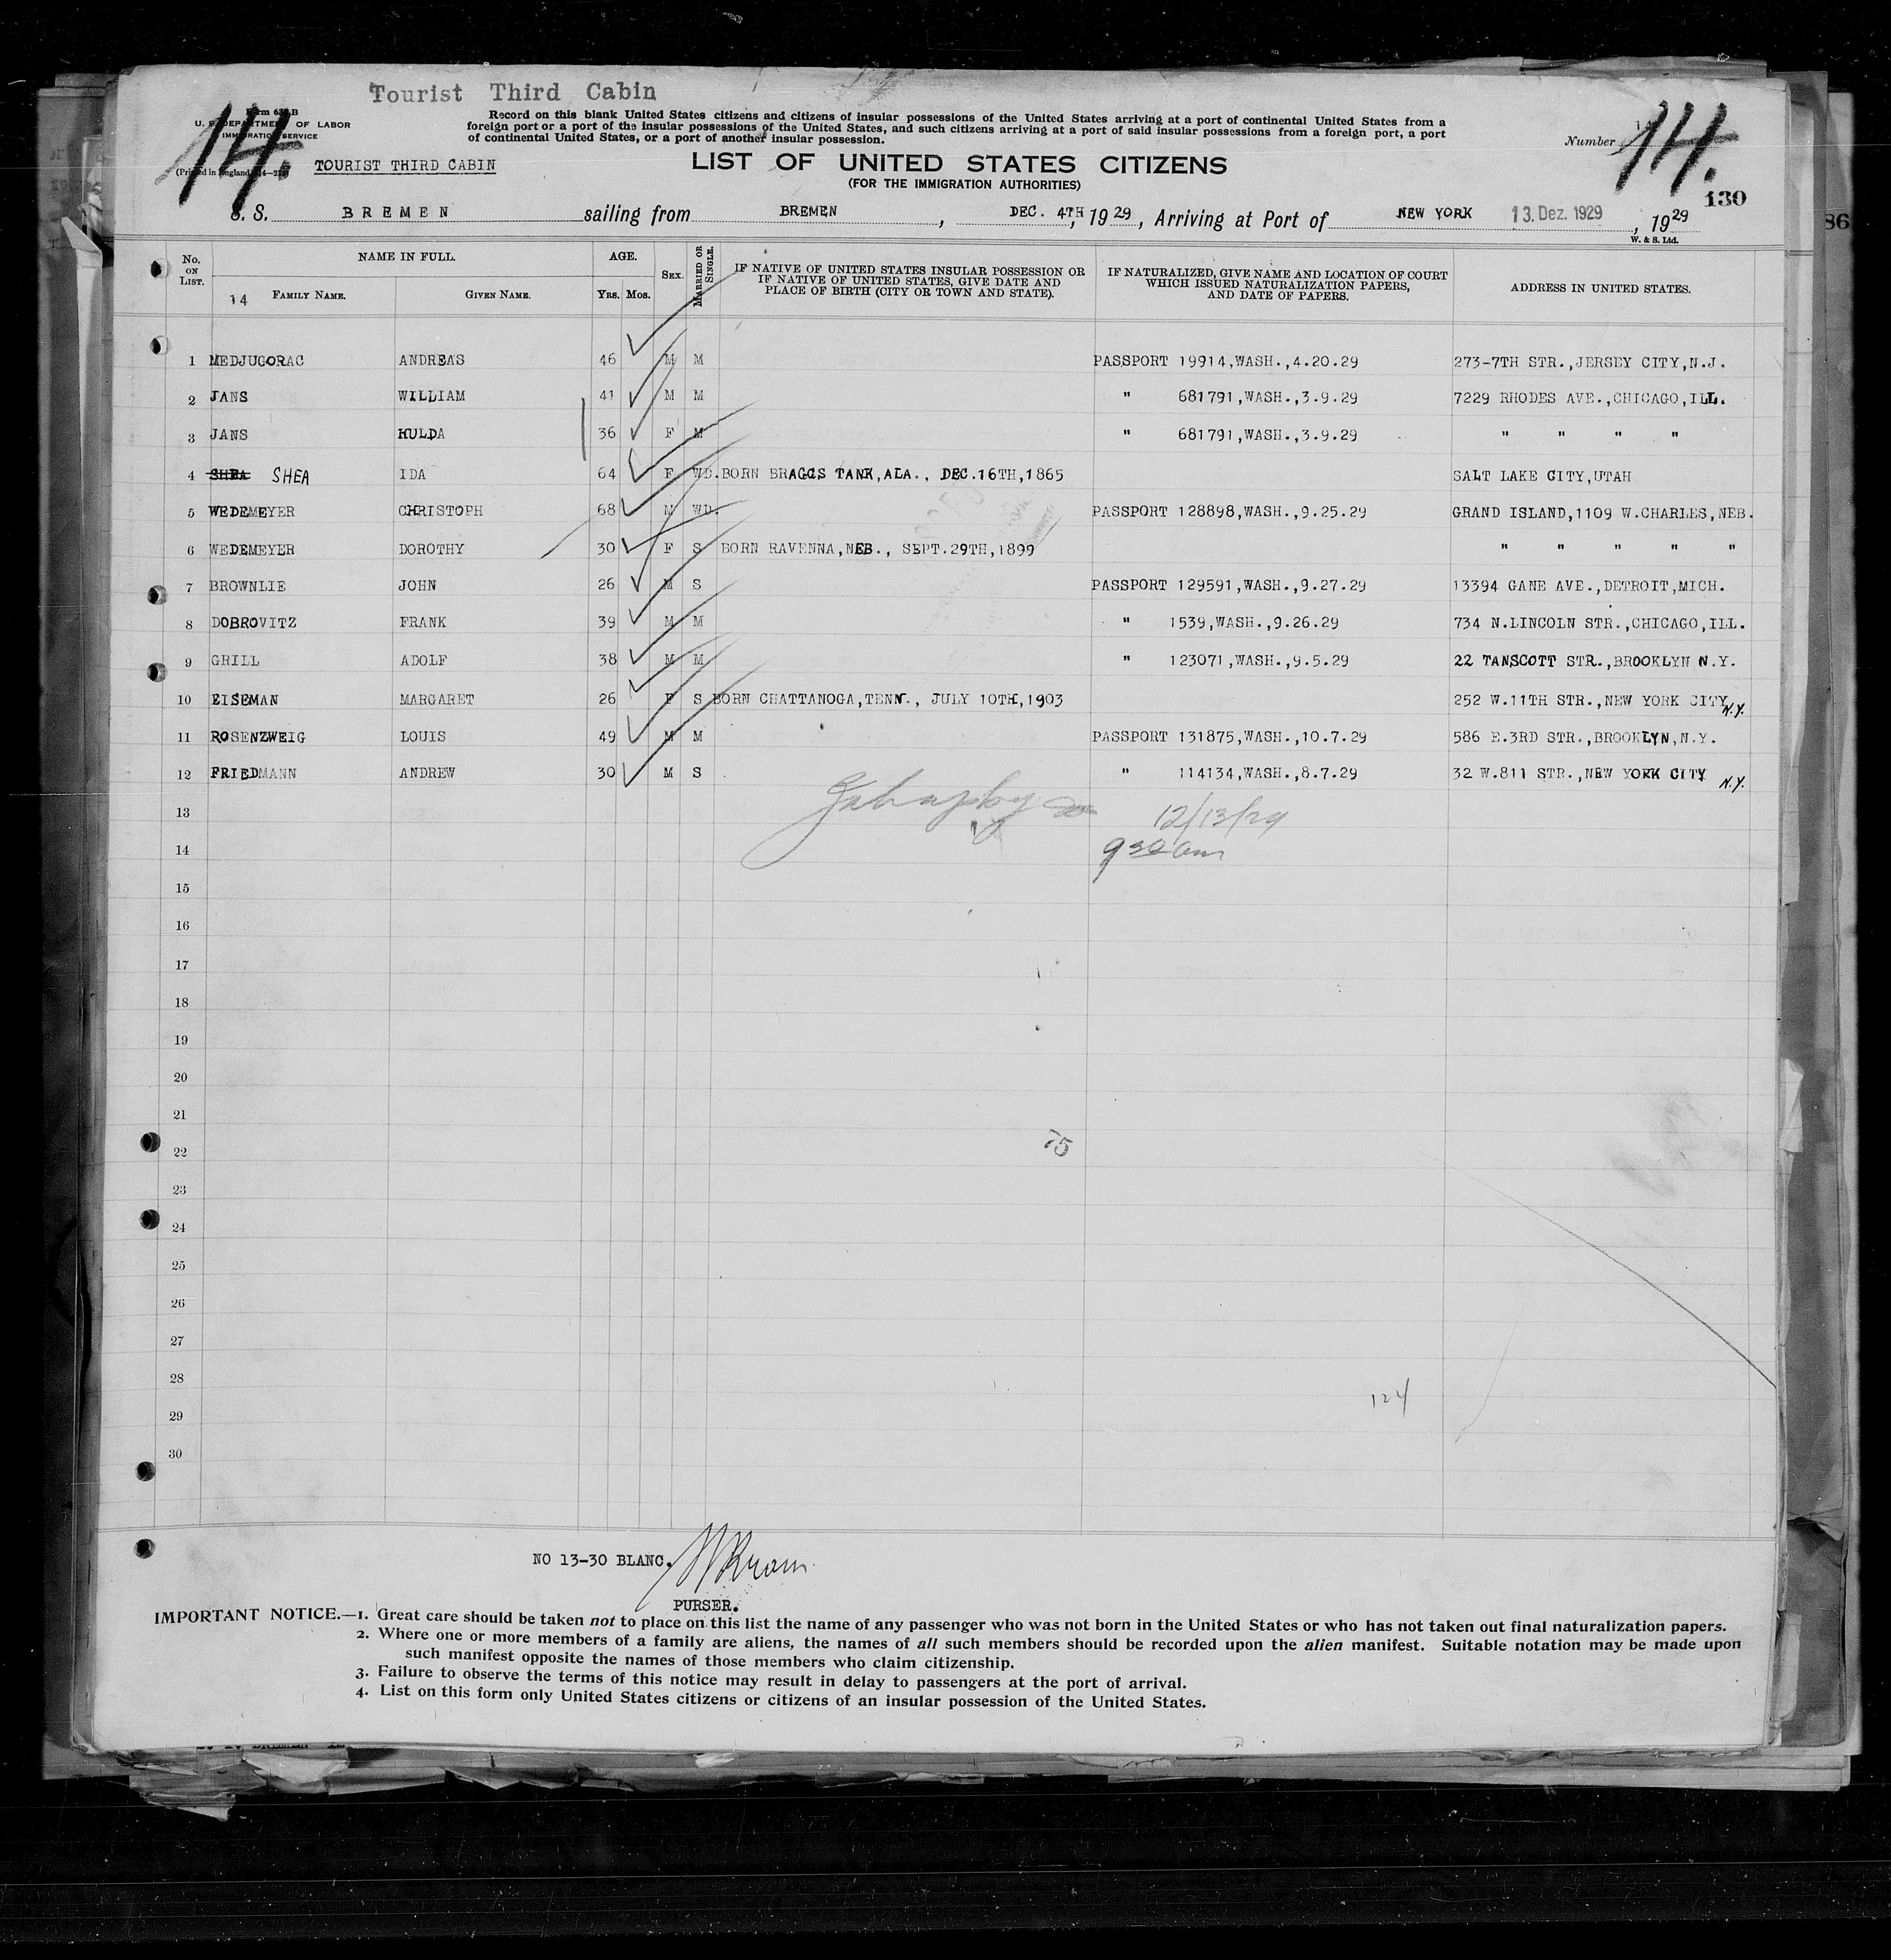 Tourist Third Cabin
Form 630 B
U. S. DEPARTMENT OF LABOR
IMMIGRATION SERVICE
14.
TOURIST THIRD CABIN
Record on this blank United States citizens and citizens of insular possessions of the United States arriving at a port of continental United States from a
foreign port or a port of the insular possessions of the United States, and such citizens arriving at a port of said insular possessions from a foreign port, a port
of continental United States, or a port of another insular possession.
LIST OF UNITED STATES CITIZENS
(FOR THE IMMIGRATION AUTHORITIES)
Number 14.
130
86
S. S. BREMEN sailing from BREMEN, DEC. 4TH, 1929, Arriving at Port of NEW YORK 13. Dez. 1929, 1929
W. & S. Ltd.
No. ON LIST. NAME IN FULL. AGE. SEX. MARRIED OR SINGLE. IF NATIVE OF UNITED STATES INSULAR POSSESSION OR IF NATIVE OF UNITED STATES, GIVE DATE AND PLACE OF BIRTH (CITY OR TOWN AND STATE). IF NATURALIZED, GIVE NAME AND LOCATION OF COURT WHICH ISSUED NATURALIZATION PAPERS, AND DATE OF PAPERS. ADDRESS IN UNITED STATES.
14 FAMILY NAME. GIVEN NAME. Yrs. Mos.
1 MEDJUGORAC ANDREAS 46 M M PASSPORT 19914,WASH.,4.20.29 273-7TH STR.,JERSEY CITY,N.J.
2 JANS WILLIAM 41 M M " 681791,WASH.,3.9.29 7229 RHODES AVE.,CHICAGO,ILL.
3 JANS HULDA 36 F M " 681791,WASH.,3.9.29 " " " "
4 SHEA SHEA IDA 64 F WD. BORN BRAGGS TANK,ALA., DEC.16TH,1865 SALT LAKE CITY,UTAH
5 WEDEMEYER CHRISTOPH 68 M WD. PASSPORT 128898,WASH.,9.25.29 GRAND ISLAND,1109 W.CHARLES,NEB.
6 WEDEMEYER DOROTHY 30 F S BORN RAVENNA,NEB., SEPT.29TH,1899 " " " " "
7 BROWNLIE JOHN 26 M S PASSPORT 129591,WASH.,9.27.29 13394 GANE AVE.,DETROIT,MICH.
8 DOBROVITZ FRANK 39 M M " 1539,WASH.,9.26.29 734 N.LINCOLN STR.,CHICAGO,ILL.
9 GRILL ADOLF 38 M M " 123071,WASH.,9.5.29 22 TANSCOTT STR.,BROOKLYN N.Y.
10 EISEMAN MARGARET 26 F S BORN CHATTANOGA,TENN., JULY 10TH,1903 252 W.11TH STR.,NEW YORK CITY N.Y.
11 ROSENZWEIG LOUIS 49 M M PASSPORT 131875,WASH.,10.7.29 586 E.3RD STR.,BROOKLYN,N.Y.
12 FRIEDMANN ANDREW 30 M S " 114134,WASH.,8.7.29 32 W.811 STR.,NEW YORK CITY N.Y.
13 12/13/29
14 9 30 am
15
16
17
18
19
20
21
22 75
23
24
25
26
27
28 124
29
30
NO 13-30 BLANC.
PURSER.
IMPORTANT NOTICE.—1. Great care should be taken not to place on this list the name of any passenger who was not born in the United States or who has not taken out final naturalization papers.
2. Where one or more members of a family are aliens, the names of all such members should be recorded upon the alien manifest. Suitable notation may be made upon
such manifest opposite the names of those members who claim citizenship.
3. Failure to observe the terms of this notice may result in delay to passengers at the port of arrival.
4. List on this form only United States citizens or citizens of an insular possession of the United States.